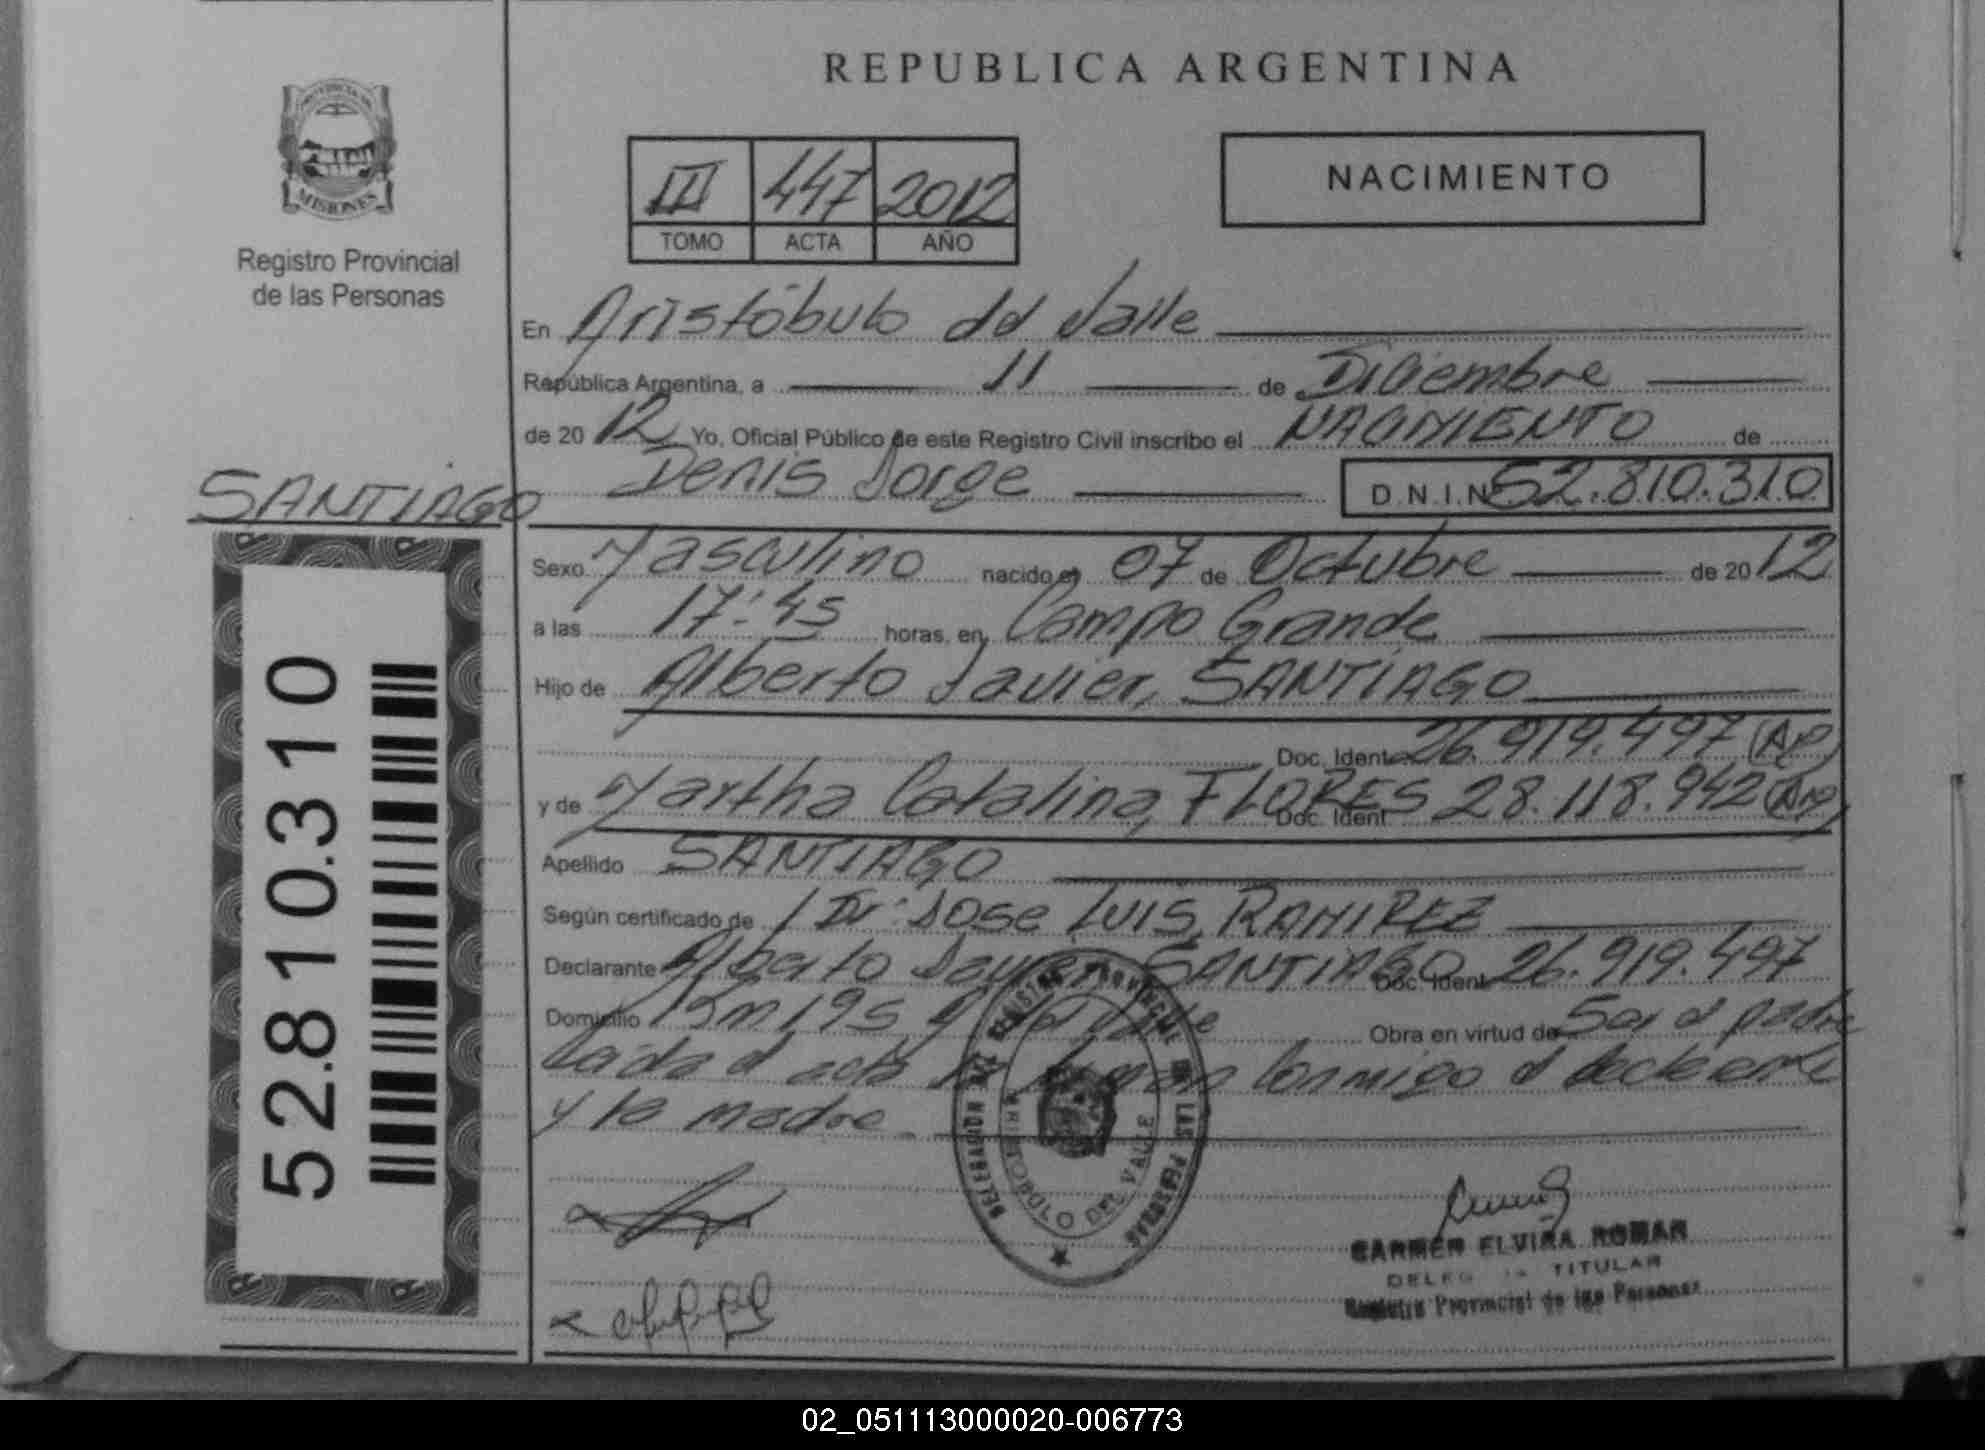 REPUBLICA ARGENTINA
PROVINCIA DE
MISIONES
Registro Provincial
de las Personas
III 447 2012
TOMO ACTA AÑO
NACIMIENTO
En Aristóbulo del Valle
República Argentina, a 11 de Diciembre
de 2012 Yo, Oficial Público de este Registro Civil inscribo el NACIMIENTO de
Denis Jorge D.N.I.Nº 52.810.310
SANTIAGO
Sexo Masculino nacido el 07 de Octubre de 2012
a las 17:45 horas, en Campo Grande
Hijo de Alberto Javier, SANTIAGO
Doc. Ident 26.919.497 (Arg)
y de Martha Catalina, FLORES Doc. Ident 28.118.942 (Arg)
Apellido SANTIAGO
Según certificado de Dr. Jose Luis, RAMIREZ
Declarante Alberto Javier SANTIAGO Doc. Ident 26.919.497
Domicilio Obra en virtud de Ser el padre
Leida el acta la firman conmigo el declarante
y la madre
52.810.310
DELEGACION DEL REGISTRO PROVINCIAL DE LAS PERSONAS
ARISTOBULO DEL VALLE
CARMEN ELVIRA ROMAN
TITULAR
Registro Provincial de las Personas
02_051113000020-006773